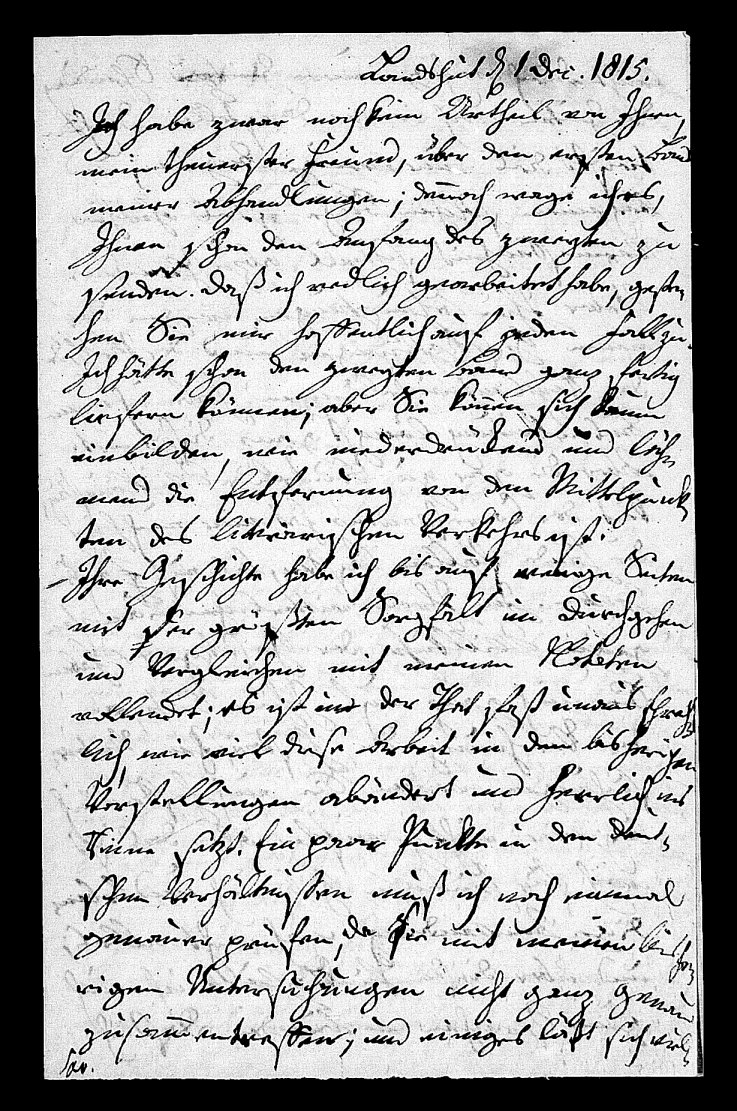 Landshut d 1 Dec. 1815.
Ich habe zwar noch kein Urtheil von Ihnen,
mein theuerster Freund, über den ersten Band
meiner Abhandlungen; dennoch wage ichs,
Ihnen schon den Anfang des zweyten zu
senden. Daß ich redlich gearbeitet habe, geste-
hen Sie mir hoffentlich auf jeden Fall zu.
Ich hätte schon den zweyten Band ganz fertig
liefern können; aber Sie können sich kaum
einbilden, wie niederdrückend und läh-
mend die Entfernung von den Mittelpunk-
ten des literärischen Verkehrs ist.
– Ihre Geschichte habe ich bis auf wenige Seiten
mit der größten Sorgfalt im Durchgehen
und Vergleichen mit meinen Notaten
vollendet; es ist in der That fast unaussprech-
lich, wie viel diese Arbeit in den bisherigen
Vorstellungen abändert und herrlich ins
Reine setzt. Ein paar Punkte in den deut-
schen Verhältnissen muß ich noch einmal
genauer prüfen, da Sie mit meinen bishe-
rigen Untersuchungen nicht ganz genau
zusammentreffen; und einiges läßt sich viel-